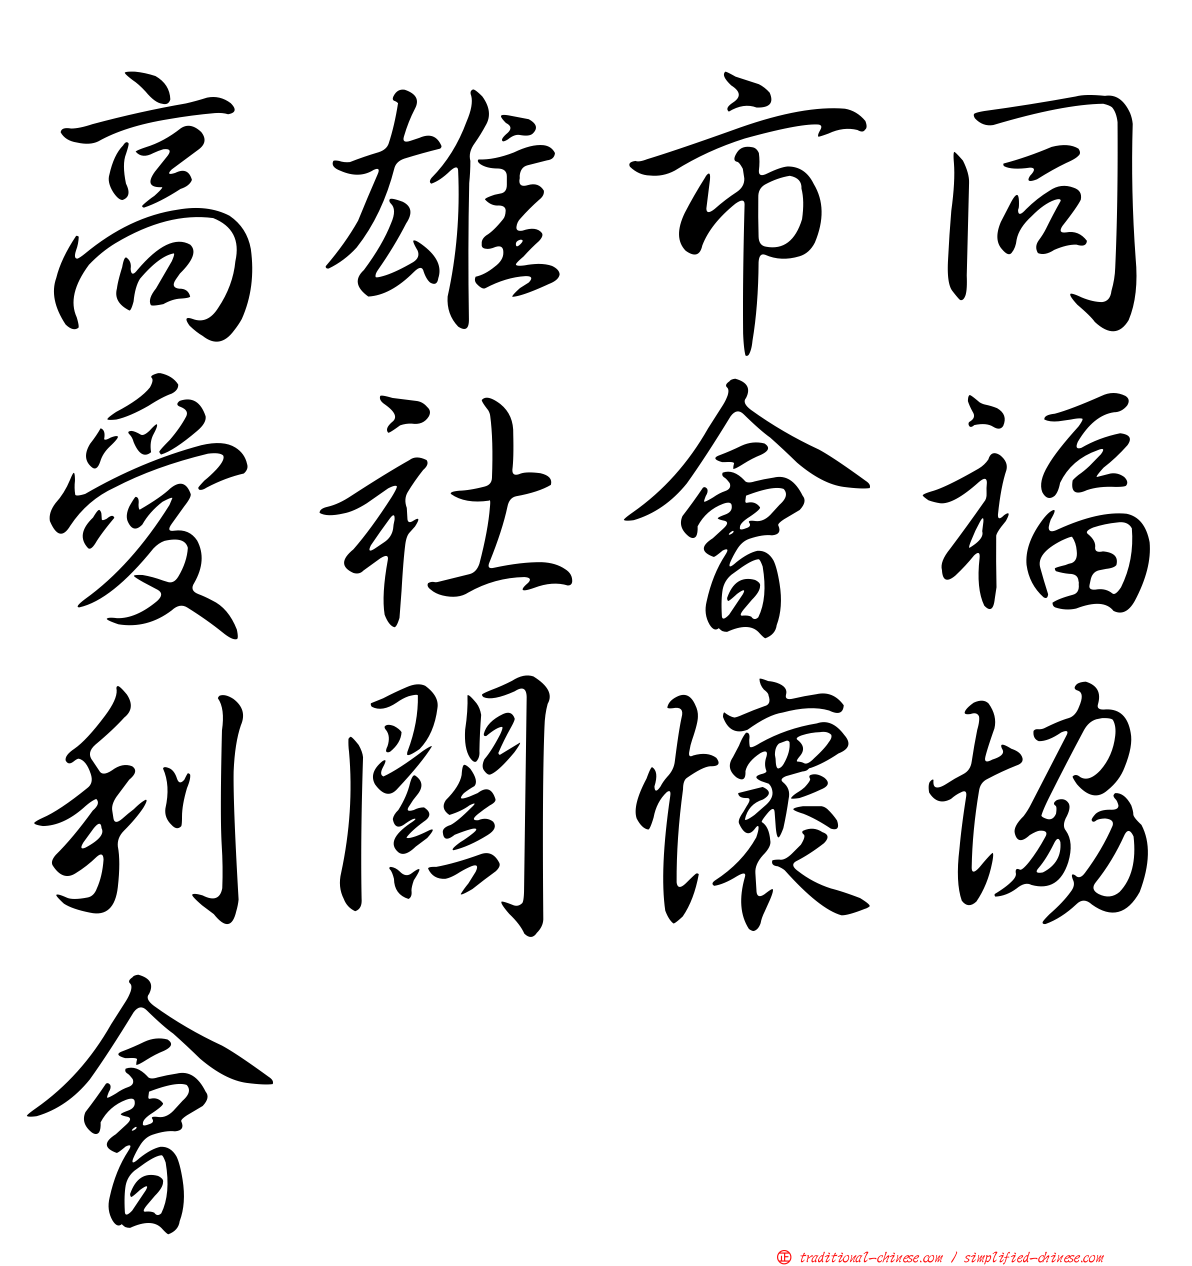 高雄市同
愛社會福
利關懷協
會
正 traditional-chinese.com / simplified-chinese.com